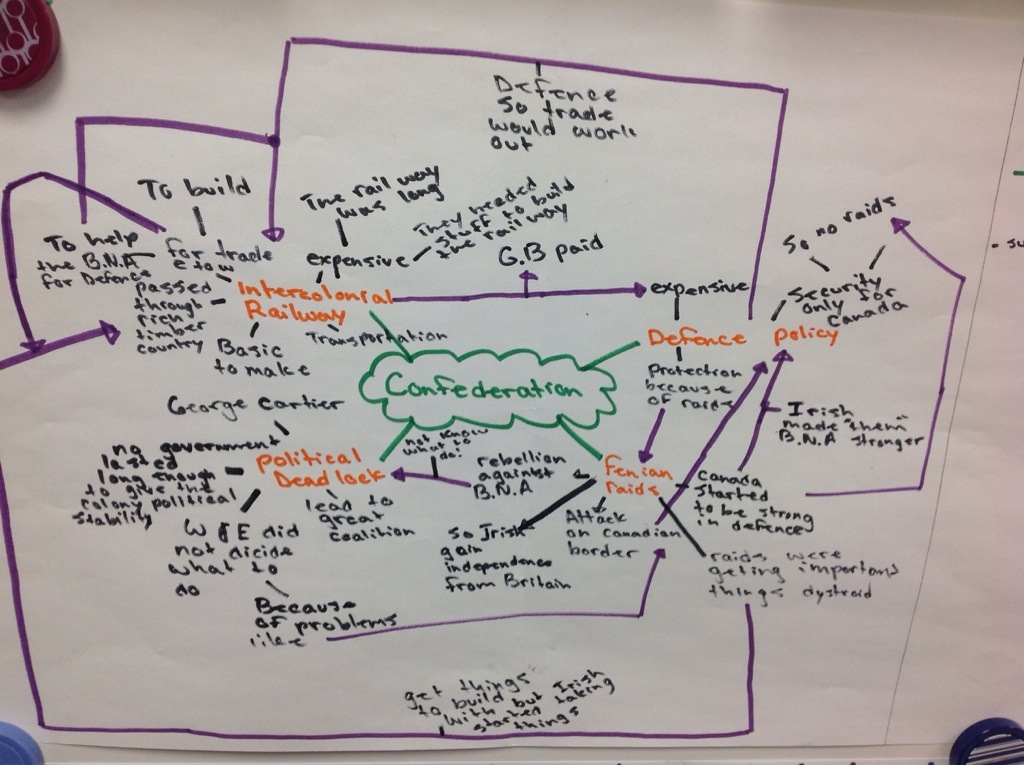 Defence
so trade
would work
out
To build
The rail way
was long
They needed
stuff to build
the rail way
G.B paid
So no raids
To help
the B.N.A
for Defence
for trade
E to W
expensive
expensive
Security
only for
Canada
passed
through
rich
timber
country
Intercolonial
Railway
Transportation
Basic
to make
Defence
Policy
Confederation
Protection
because
of raids
Irish
made "them"
B.N.A stronger
George Cartier
no government
lasted
long enough
to give the
colony political
stability
Political
Deadlock
not know
what to
do!
rebellion
against
B.N.A
Fenian
raids
Canada
started
to be strong
in defence
lead to
great
coalition
W & E did
not dicide
what to
do
so Irish
gain
independence
from Britain
Attack
on canadian
border
raids were
geting important
things dystroid
Because
of problems
like
get things
to build but Irish
with
started taking
things